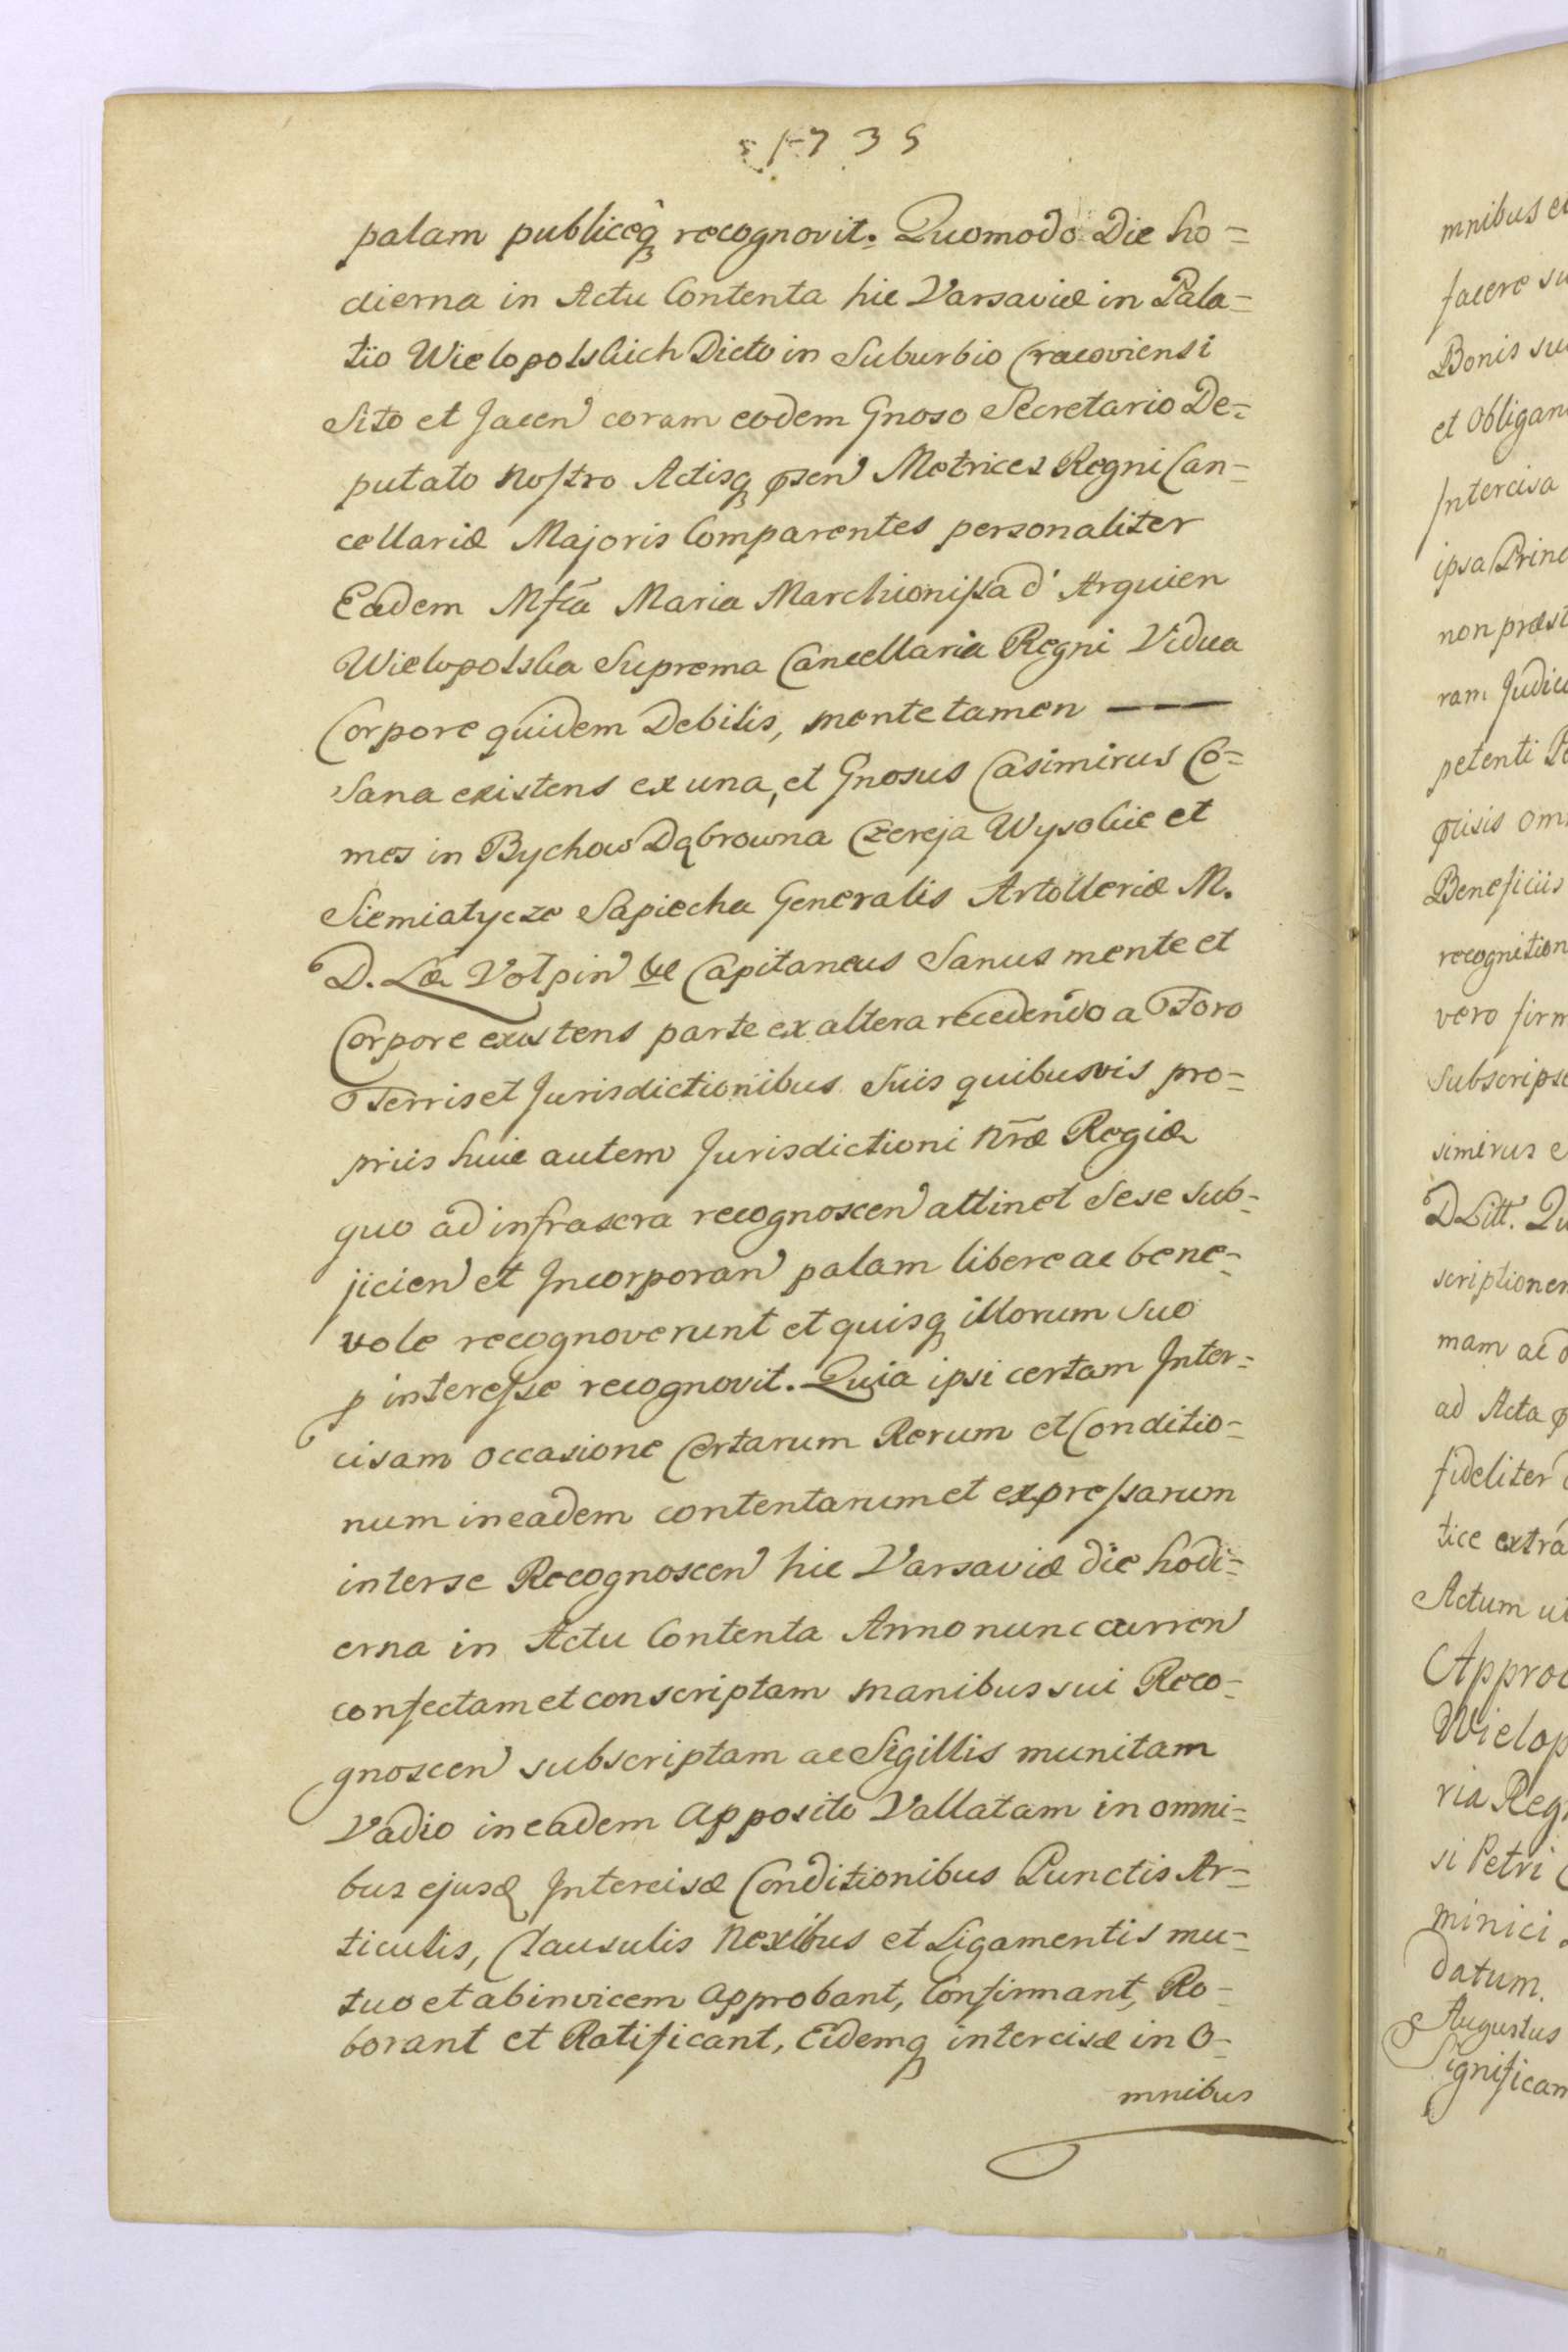 1735
palam publiceq́ recognovit. Quomodo Die ho=
dierna in Actu Contenta hic Varsaviæ in Pala=
tio Wielopolskich Dicto in Suburbio Cracoviensi
Sito et Jacen coram eodem Gnoso Secretario De=
putato Nostro Actisq́ psen Metrices Regni Can=
cellariæ Majoris Comparentes personaliter
Eadem Mfca Maria Marchionissa d' Arquien
Wielopolska Suprema Cancellaria Regni Vidua
Corpore quidem Debilis, mente tamen ———
Sana existens ex una, et Gnosus Casimirus Co=
mes in Bychow Dąbrowna Czereja Wysokie et
Siemiatycze Sapiecha Generalis Artolleriæ M.
D. L. Volpin Capitaneus Sanus mente et
Corpore existens parte ex altera recedendo a Foro
Terris et Jurisdictionibus Suis quibusvis pro=
priis huic autem Jurisdictioni Nræ Regiæ
quo ad infrascra recognoscen attinet Sese sub=
jicien et Incorporan palam libere ac bene=
vole recognoverunt et quisq́ illorum suo
p interesse recognovit. Quia ipsi certam Inter=
cisam occasione Certarum Rerum et Conditio=
num in eadem contentarum et expressarum
inter se Recognoscen hic Varsaviæ die hodi=
erna in Actu Contenta Anno nunc curren
confectam et conscriptam manibus sui Reco=
gnoscen subscriptam ac Sigillis munitam
Vadio in eadem apposito Vallatam in omni=
bus ejusd Intercisæ Conditionibus Punctis Ar=
ticulis, Clausulis Nexibus et Ligamentis mu=
tuo et ab invicem approbant, Confirmant, Ro=
borant et Ratificant, Eidemq́ intercisæ in O=
mnibus
mnibus
facere
Bonis
et Obligan
Intercisa
ipsa Princ
non præst
ram Judic
petenti
omn
Beneficiis
recognition
vero firm
Subscrips
simirus
D Litt.
scriptionem
mam ac
ad Acta
fideliter
tice extra
Actum
Approb
Wielop
ria Reg
si Petri
minici
datum.
Augustus
Significam